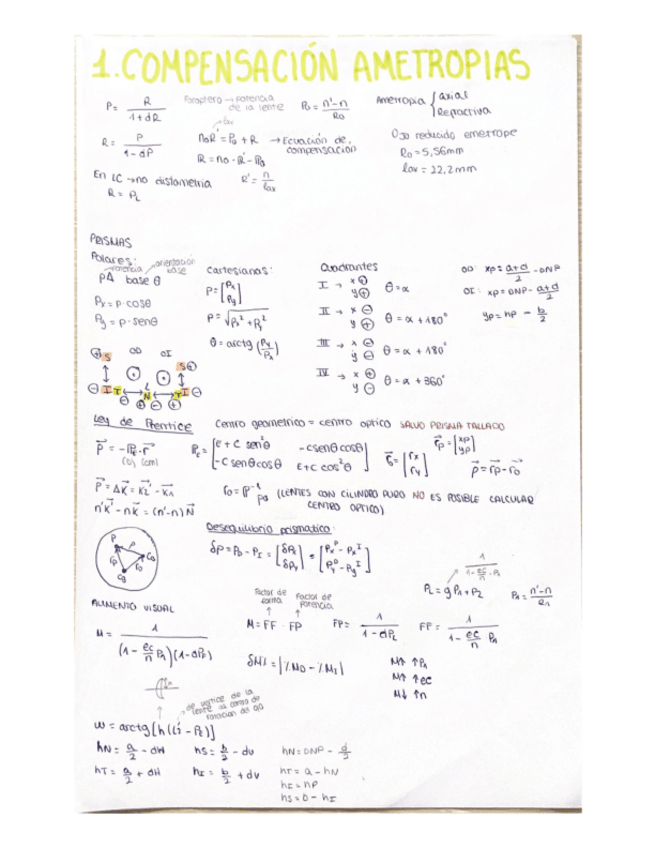 1. COMPENSACIÓN AMETROPIAS
P = R / 1+dR
Foroptero → potencia de la lente
P₀ = n'-n / R₀
Ametropia { axial
Refractiva
R = P / 1-dP
n₀R' = P₀ + R → Ecuación de compensación
Ojo reducido emetrope
R₀ = 5,56mm
lax = 22,2mm
R = n₀·R' - P₀
En LC → no distometria
R = PL
R' = n / lax
PRISMAS
Polares:
potencia orientación base
PΔ base θ
Px = P·cosθ
Py = P·senθ
Cartesianas:
P = [Px Py]
P = √Px² + Py²
θ = arctg (Py/Px)
Cuadrantes
I → x ⊕ y ⊕ θ = α
II → x ⊖ y ⊕ θ = α + 180°
III → x ⊖ y ⊖ θ = α + 180°
IV → x ⊕ y ⊖ θ = α + 360°
OD: xp = a+d / 2 - DNP
OI: xp = DNP - a+d / 2
yp = hp - b / 2
⊕ S OD OI S ⊕
⊖ I T N T I ⊖
Ley de Prentice
Centro geometrico = centro optico SALVO PRISMA TALLADO
P = -PE·r
(D) (cm)
PE = [E + C sen²θ -C senθ cosθ
-C senθ cosθ E + C cos²θ]
r₀ = [rx ry]
rp = [xp yp]
ρ = rp - r₀
P = ΔK = K2' - K1
n'K' - nK = (n'-n)N
r₀ = P⁻¹ pθ (LENTES CON CILINDRO PURO NO ES POSIBLE CALCULAR CENTRO OPTICO)
Desequilibrio prismatico:
δP = PD - PI = [δPx δPy] = [PxD - PxI PyD - PyI]
AUMENTO VISUAL
M = 1 / (1 - ec/n P1)(1 - dPL)
Factor de forma Factor de potencia
M = FF · FP
FP = 1 / 1-dPL
FF = 1 / 1 - ec/n P1
1 / 1 - ec/n · P1
PL = gP1 + P2
P1 = n'-n / R1
δM% = |%MD - %MI|
M↑ ↑P1
M↑ ↑ec
M↓ ↑n
de vertice de la lente al centro de rotacion del ojo
hN = a/2 - dH
hS = b/2 - dv
hN = DNP - d/2
hT = a/2 + dH
hI = b/2 + dv
hT = a - hN
hI = hp
hS = b - hI